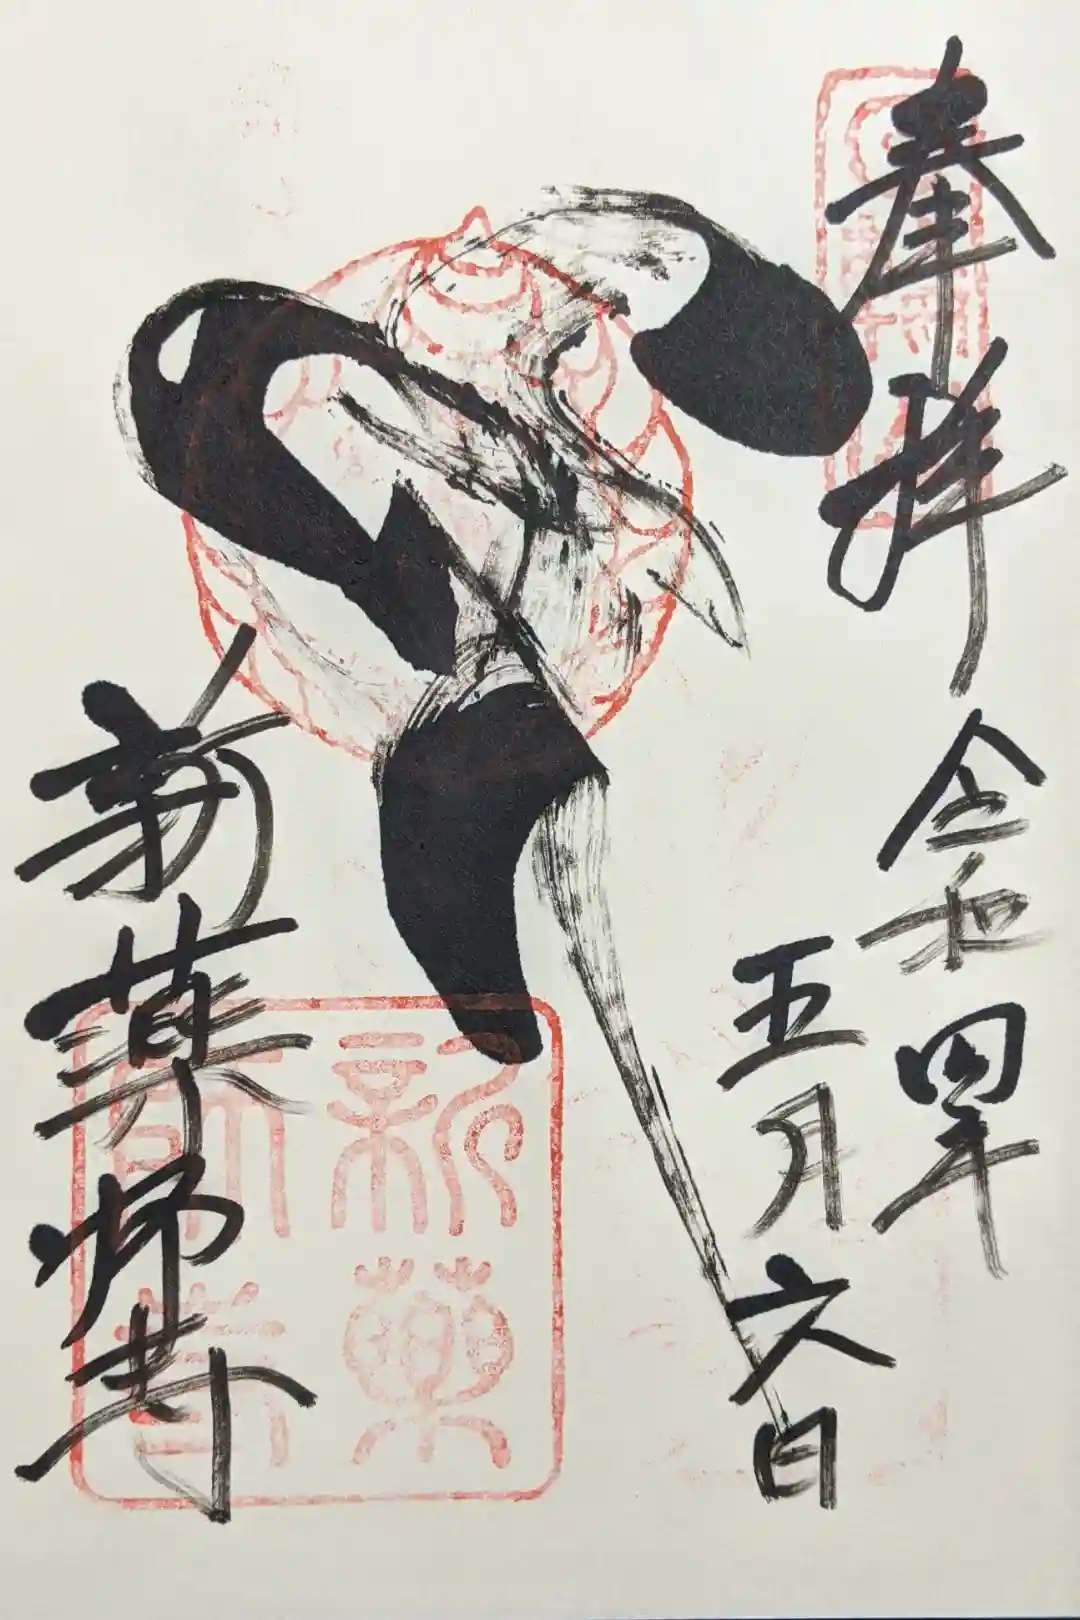 奉拝
令和四年
五月六日
新薬師寺
新藥
師寺